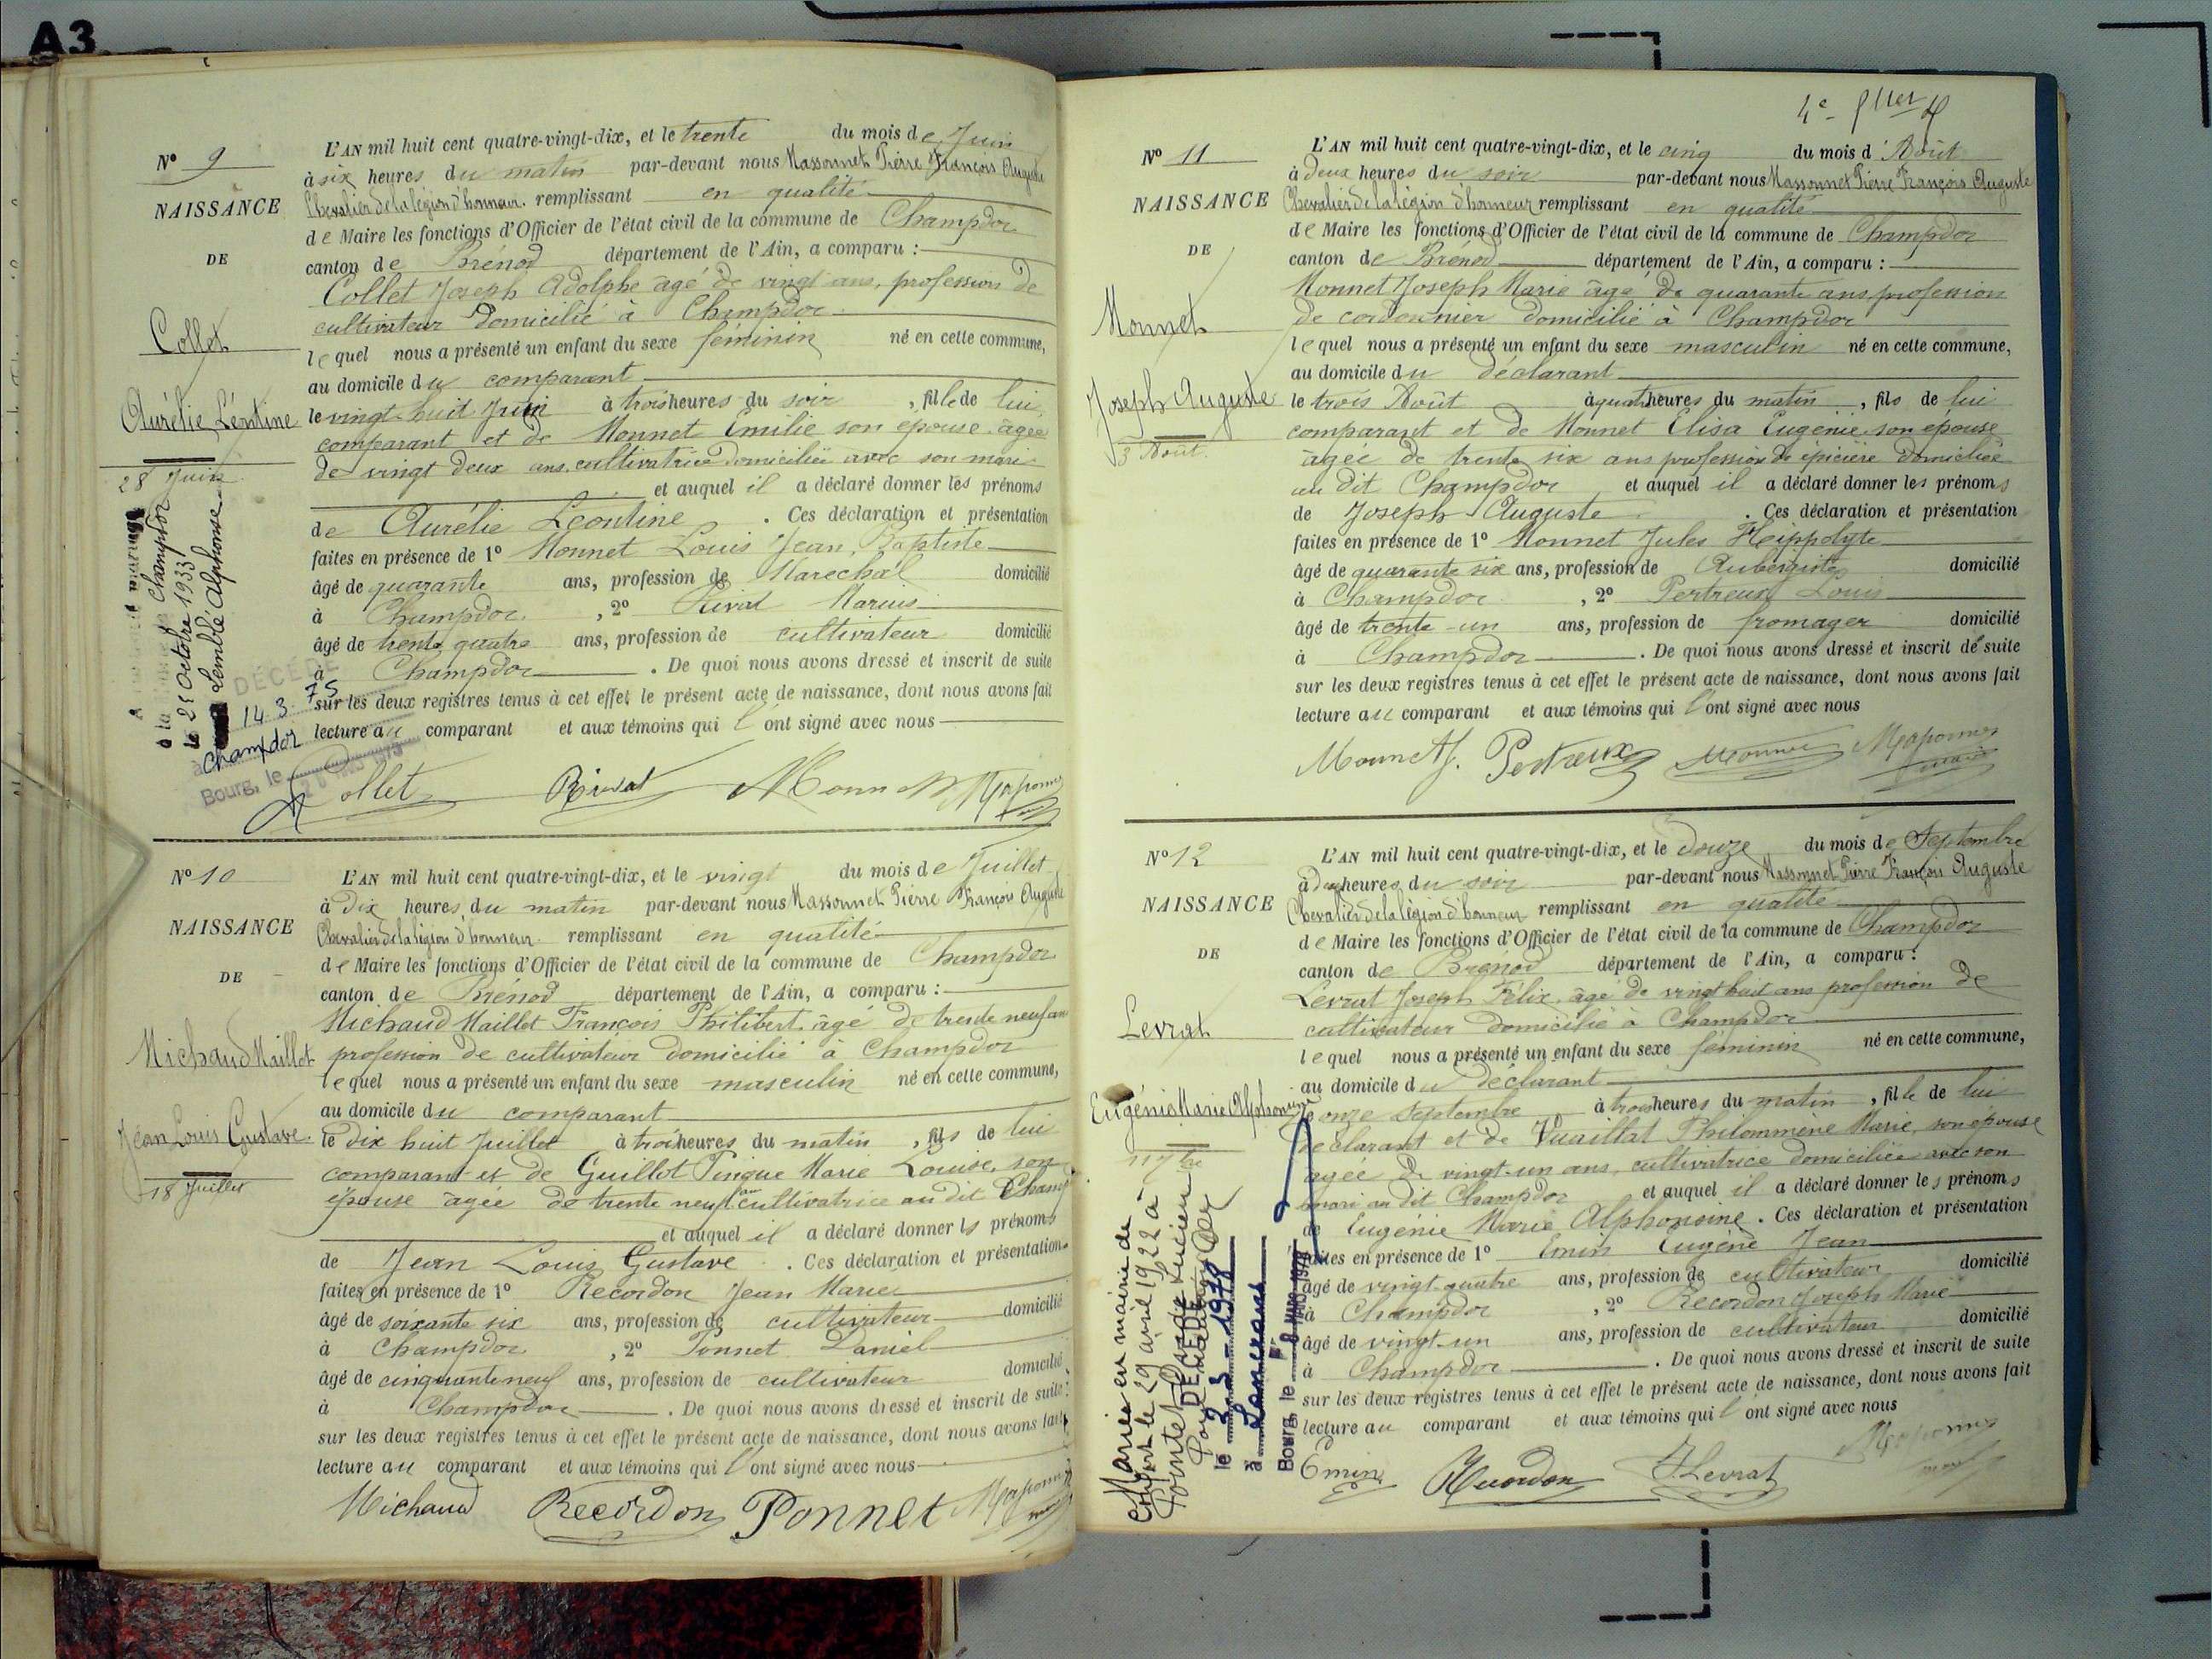 A3
Nº 9
NAISSANCE
DE
Collet
Aurélie Léontine
28 Juin
à Champdor
le 21 Octobre 1933
Lemblé Alphonse
DÉCÉDÉ
14.3.75
à Champdor
Bourg, le
L'AN mil huit cent quatre-vingt-dix, et le trente du mois de Juin
à six heures du matin par-devant nous Massonnet Pierre François Auguste
Chevalier de la légion d'honneur remplissant en qualité
de Maire les fonctions d'Officier de l'état civil de la commune de Champdor
canton de Brénod département de l'Ain, a comparu :
Collet Joseph Adolphe âgé de vingt ans, profession de
cultivateur domicilié à Champdor
lequel nous a présenté un enfant du sexe féminin né en cette commune,
au domicile du comparant
le vingt-huit Juin à trois heures du soir, fille de lui
comparant et de Monnet Emilie son épouse âgée
de vingt deux ans, cultivatrice domiciliée avec son mari
et auquel il a déclaré donner les prénoms
de Aurélie Léontine. Ces déclaration et présentation
faites en présence de 1º Monnet Louis Jean Baptiste
âgé de quarante ans, profession de Maréchal domicilié
à Champdor, 2º Rivat Marius
âgé de trente quatre ans, profession de cultivateur domicilié
à Champdor. De quoi nous avons dressé et inscrit de suite
sur les deux registres tenus à cet effet le présent acte de naissance, dont nous avons fait
lecture au comparant et aux témoins qui l'ont signé avec nous
Collet Rivat Monnet
Nº 10
NAISSANCE
DE
Michaud Maillet
Jean Louis Gustave
18 Juillet
L'AN mil huit cent quatre-vingt-dix, et le vingt du mois de Juillet
à dix heures du matin par-devant nous Massonnet Pierre François Auguste
Chevalier de la légion d'honneur remplissant en qualité
de Maire les fonctions d'Officier de l'état civil de la commune de Champdor
canton de Brénod département de l'Ain, a comparu :
Michaud Maillet François Philibert âgé de trente neuf ans
profession de cultivateur domicilié à Champdor
lequel nous a présenté un enfant du sexe masculin né en cette commune,
au domicile du comparant
le dix huit Juillet à trois heures du matin, fils de lui
comparant et de Guillot Pingue Marie Louise, son
épouse âgée de trente neuf ans cultivatrice au dit Champ
et auquel il a déclaré donner les prénoms
de Jean Louis Gustave. Ces déclaration et présentation
faites en présence de 1º Recordon Jean Marie
âgé de soixante six ans, profession de cultivateur domicilié
à Champdor, 2º Ponnet Daniel
âgé de cinquante neuf ans, profession de cultivateur domicilié
à Champdor. De quoi nous avons dressé et inscrit de suite
sur les deux registres tenus à cet effet le présent acte de naissance, dont nous avons fait
lecture au comparant et aux témoins qui l'ont signé avec nous
Michaud Recordon Ponnet
Nº 11
NAISSANCE
DE
Monnet
Joseph Auguste
3 Août
L'AN mil huit cent quatre-vingt-dix, et le cinq du mois d'Août
à deux heures du soir par-devant nous Massonnet Pierre François Auguste
Chevalier de la légion d'honneur remplissant en qualité
de Maire les fonctions d'Officier de l'état civil de la commune de Champdor
canton de Brénod département de l'Ain, a comparu :
Monnet Joseph Marie âgé de quarante ans profession
de cordonnier domicilié à Champdor
lequel nous a présenté un enfant du sexe masculin né en cette commune,
au domicile du déclarant
le trois Août à quatre heures du matin, fils de lui
comparant et de Monnet Elisa Eugénie son épouse
âgée de trente six ans profession de épicière domiciliée
au dit Champdor et auquel il a déclaré donner les prénoms
de Joseph Auguste. Ces déclaration et présentation
faites en présence de 1º Monnet Jules Hippolyte
âgé de quarante six ans, profession de Aubergiste domicilié
à Champdor, 2º Pertreux Louis
âgé de trente-un ans, profession de fromager domicilié
à Champdor. De quoi nous avons dressé et inscrit de suite
sur les deux registres tenus à cet effet le présent acte de naissance, dont nous avons fait
lecture au comparant et aux témoins qui l'ont signé avec nous
Monnet J. Pertreux Monnet
Nº 12
NAISSANCE
DE
Levrat
Eugénie Marie Alphonsine
11 7bre
Mariée en mairie de
le 29 avril 1922 à
DÉCÉDÉE
le 2-3-1978
à Lancrans
Bourg, le 8 MARS 1978
L'AN mil huit cent quatre-vingt-dix, et le douze du mois de Septembre
à deux heures du soir par-devant nous Massonnet Pierre François Auguste
Chevalier de la légion d'honneur remplissant en qualité
de Maire les fonctions d'Officier de l'état civil de la commune de Champdor
canton de Brénod département de l'Ain, a comparu :
Levrat Joseph Félix âgé de vingt huit ans profession de
cultivateur domicilié à Champdor
lequel nous a présenté un enfant du sexe féminin né en cette commune,
au domicile du déclarant
le onze Septembre à trois heures du matin, fille de lui
déclarant et de Vuaillat Philomméne Marie, son épouse
âgée de vingt-un ans, cultivatrice domiciliée avec son
mari au dit Champdor et auquel il a déclaré donner les prénoms
de Eugénie Marie Alphonsine. Ces déclaration et présentation
faites en présence de 1º Emin Eugène Jean
âgé de vingt-quatre ans, profession de cultivateur domicilié
à Champdor, 2º Recordon Joseph Marie
âgé de vingt-un ans, profession de cultivateur domicilié
à Champdor. De quoi nous avons dressé et inscrit de suite
sur les deux registres tenus à cet effet le présent acte de naissance, dont nous avons fait
lecture au comparant et aux témoins qui l'ont signé avec nous
Emin Recordon F. Levrat